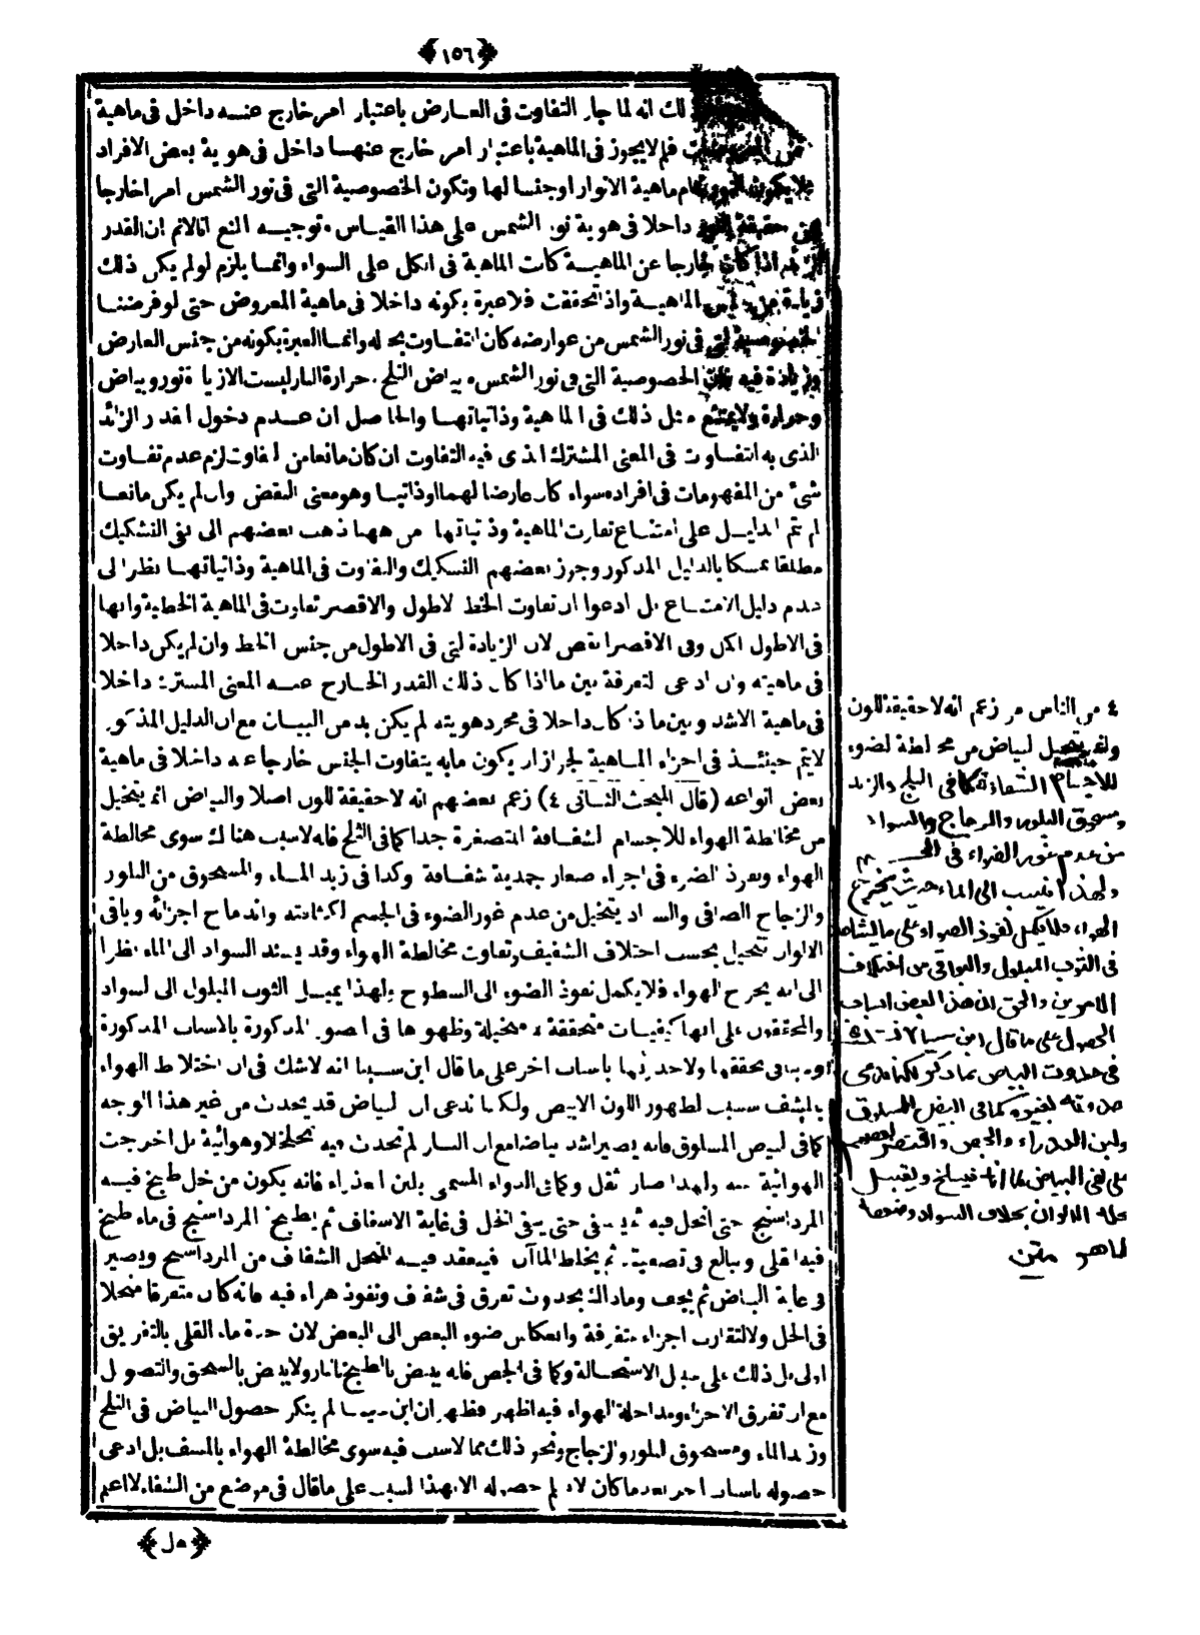 ﴿١٥٦﴾
لك انه لما جاز التفاوت فى العارض باعتبار امر خارج عنه داخل فى ماهية
فلم لا يجوز فى الماهية باعتبار امر خارج عنها داخل فى هوية بعض الافراد
ماهية الانوار او جنسا لها وتكون الخصوصية التى فى نور الشمس امرا خارجا
حقيقة النور داخلا فى هوية نور الشمس على هذا القياس وتوجيه المنع انا لا نم ان القدر
اذا كان خارجا عن الماهية كانت الماهية فى الكل على السواء وانما يلزم لو لم يكن ذلك
الماهية واذ تحققت فلا عبرة بكونه داخلا فى ماهية المعروض حتى لو فرضنا
الخصوصية التى فى نور الشمس من عوارضه كان التفاوت بحاله وانما العبرة بكونه من جنس العارض
وزيادة فيه فان الخصوصية التى فى نور الشمس وبياض الثلج وحرارة النار ليست الا زيادة نور وبياض
وحرارة ولا يمتنع مثل ذلك فى الماهية وذاتياتها والحاصل ان عدم دخول القدر الزائد
الذى به التفاوت فى المعنى المشترك الذى فيه التفاوت ان كان مانعا من التفاوت لزم عدم تفاوت
شئ من المفهومات فى افراده سواء كان عارضا لها او ذاتيا وهو معنى النقض وان لم يكن مانعا
لم تتم الدليل على امتناع تفاوت الماهية وذاتياتها من ههنا ذهب بعضهم الى نفى التشكيك
مطلقا تمسكا بالدليل المذكور وجوز بعضهم التشكيك والتفاوت فى الماهية وذاتياتها نظرا الى
عدم دليل الامتناع بل ادعوا ان تفاوت الخط الاطول والاقصر تفاوت فى الماهية الخطية وانها
فى الاطول اكمل وفى الاقصر انقص لان الزيادة التى فى الاطول من جنس الخط وان لم يكن داخلا
فى ماهيته وان ادعى التفرقة بين ما اذا كان ذلك القدر الخارج عن المعنى المشترك داخلا
فى ماهية الاشد وبين ما اذا كان داخلا فى مجرد هويته لم يكن بد من البيان مع ان الدليل المذكور
لا يتم حينئذ فى اجزاء الماهية لجواز ان يكون ما به يتفاوت الجنس خارجا عنه داخلا فى ماهية
بعض انواعه (قال المبحث الثانى ٤) زعم بعضهم انه لا حقيقة للون اصلا والبياض انما يتخيل
من مخالطة الهواء للاجسام الشفافة المتصغرة جدا كما فى الثلج فانه لا سبب هناك سوى مخالطة
الهواء ونفوذ الضوء فى اجزاء صغار جمدية شفافة وكذا فى زبد الماء والمسحوق من البلور
والزجاج الصافى والسواد يتخيل من عدم غور الضوء فى الجسم لكثافته واندماج اجزائه وباقى
الالوان تتخيل بحسب اختلاف الشفيف وتفاوت مخالطة الهواء وقد يسند السواد الى الماء نظرا
الى انه يخرج الهواء فلا يكمل نفوذ الضوء الى السطوح ولهذا يميل الثوب المبلول الى السواد
والمحققون على انها كيفيات متحققة لا متخيلة وظهورها فى الصور المذكورة بالاسباب المذكورة
لا ينافى تحققها ولا حدوثها باسباب اخر على ما قال ابن سينا انه لا شك فى ان اختلاط الهواء
بالمشف سبب لظهور اللون الابيض ولكنا ندعى ان البياض قد يحدث من غير هذا الوجه
كما فى البيض المسلوق فانه يصير اشد بياضا مع ان النار لم تحدث فيه تخلخلا وهوائية بل اخرجت
الهوائية عنه ولهذا صار اثقل وكما فى الدواء المسمى بلبن العذراء فانه يكون من خل طبخ فيه
المرداسنج حتى انحل فيه ثم يصفى حتى يبقى الخل فى غاية الاشفاف ثم يطبخ المرداسنج فى ماء طبخ
فيه القلى ويبالغ فى تصفيته ثم يخلط الماآن فينعقد فيه المنحل الشفاف من المرداسنج ويصير
فى غاية البياض ثم يجف وما ذاك بحدوث تفرق فى شفاف ونفوذ هواء فيه فانه كان متفرقا منحلا
فى الخل ولا لتقارب اجزاء متفرقة وانعكاس ضوء البعض الى البعض لان حدة ماء القلى بالتفريق
اولى بل ذلك على سبيل الاستحالة وكما فى الجص فانه يبيض بالطبخ بالنار ولا يبيض بالسحق والتصويل
مع ان تفرق الاجزاء ومداخلة الهواء فيه اظهر فظهر ان ابن سينا لم ينكر حصول البياض فى الثلج
وزبد الماء ومسحوق البلور والزجاج ونحو ذلك مما لا سبب فيه سوى مخالطة الهواء بالمشف بل ادعى
حصوله باسباب اخر بعد ما كان لا يعلم حصوله الا بهذا السبب على ما قال فى موضع من الشفاء لا اعلم
٤ من الناس من زعم انه لا حقيقة للون
وانما يتخيل البياض من مخالطة الضوء
للاجسام الشفافة كما فى الثلج والزبد
ومسحوق البلور والزجاج والسواد
من عدم غور الضوء فى الجسم
ولهذا ينسب الى الماء حيث يخرج
الهواء فلا يكمل نفوذ الضوء على ما يشاهد
فى الثوب المبلول والبواقى من اختلاف
الامرين والحق ان هذا لبعض اسباب
الحصول على ما قال ابن سينا لا شك
فى حدوث البياض بما ذكر لكنا ندعى
حدوثه لغيره كما فى البيض المسلوق
ولبن العذراء والجص واقتصر بعضهم
على نفى البياض لانه ينسلخ ويقبل
محله الالوان بخلاف السواد وضعفه
ظاهر متن
﴿ ول ﴾